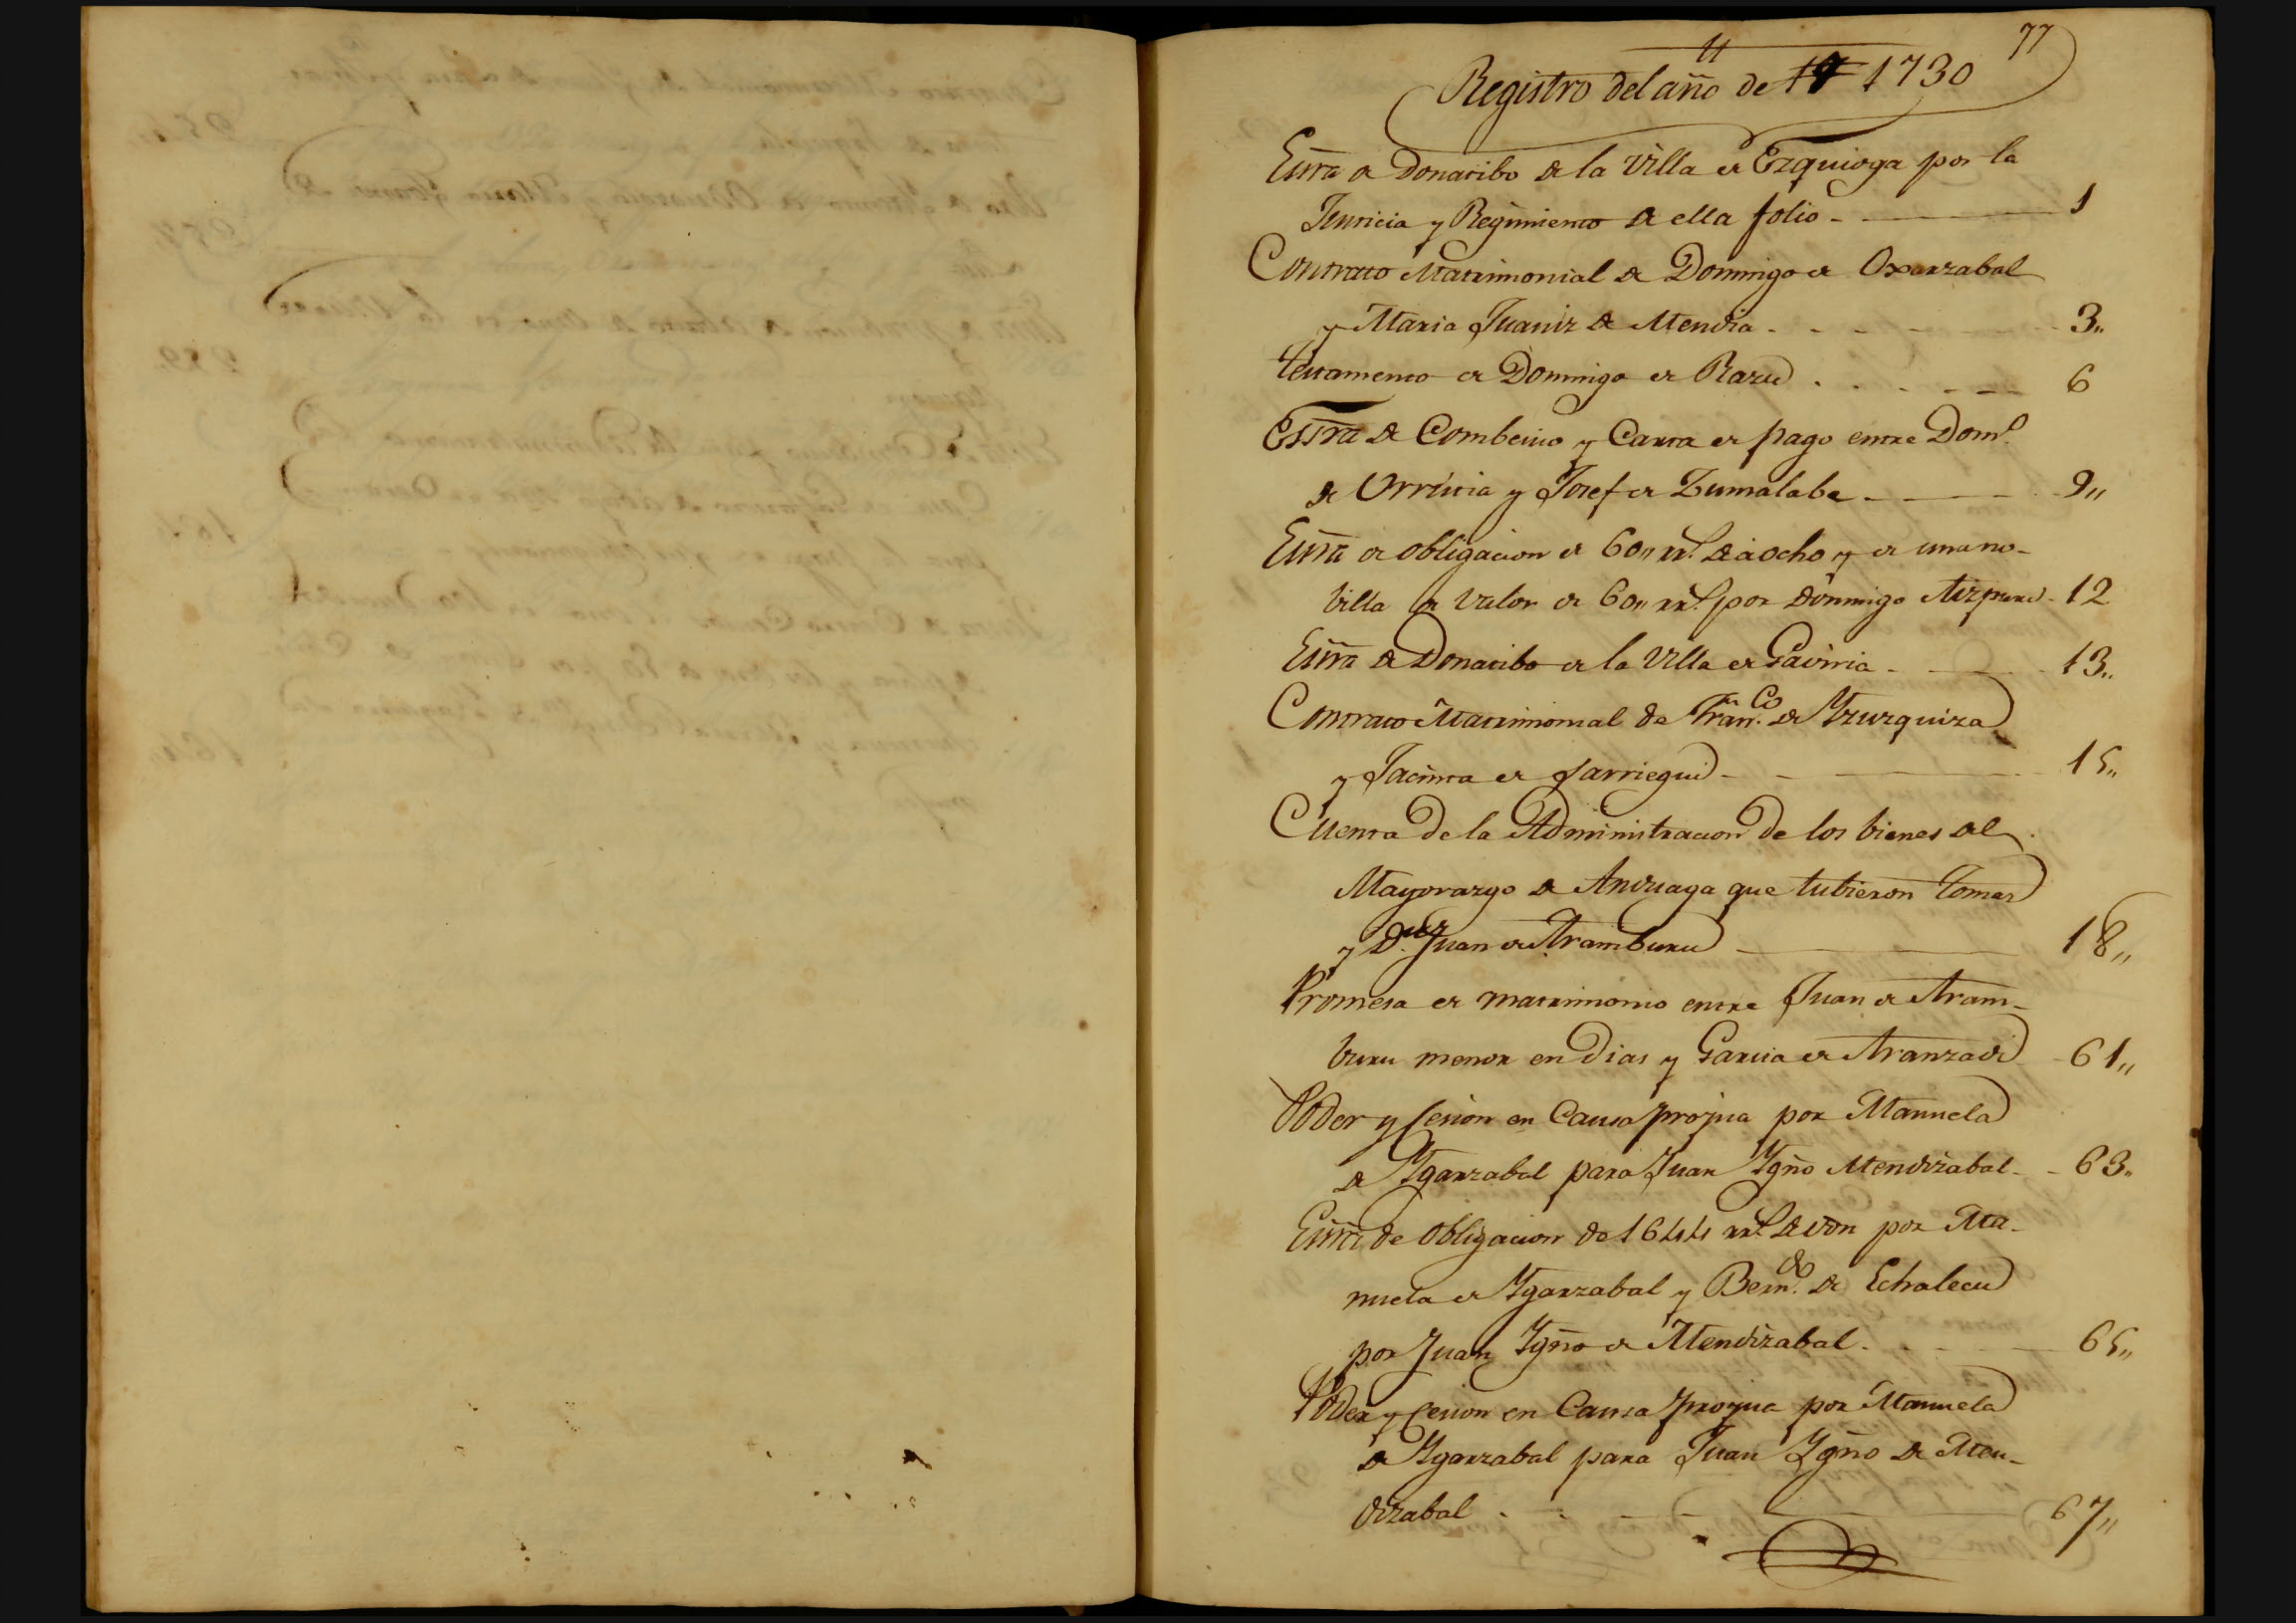 77
Registro del año de 1730
Essra de Donatibo de la Villa de Ezquioga por la
Justicia y Regimiento de ella folio 1
Contrato Matrimonial de Domingo de Oxarzabal
y Maria Juaniz de Mendia 3
testamento de Domingo de Razu 6
Essra de Combenio y Carta de pago entre Domo.
de Urrutia y Josef de Zumalabe 9
Essra de obligacion de 60 rrs. de à ocho y de una no-
billa de valor de 60 rrs. por Domingo Aizpuru 12
Essra de Donatibo de la Villa de Gaviria 13
Contrato Matrimonial de Franco. de Yzurquiza
y Jacinta de Jarriegui 15
Cuenta de la Administracion de los bienes del
Mayorazgo de Anduaga que tubieron Tomas
y Dn. Juan de Aramburu 18
Promesa de matrimonio entre Juan de Aram-
buru menor en dias y Garcia de Aranzadi 61
Poder y Cesion en Causa propia por Manuela
de Ygarzabal para Juan Ygño Mendizabal 63
Essra de obligacion de 1644 rrs. de von por Ma-
nuela de Ygarzabal y Berndo. de Echalecu
por Juan Ygño de Mendizabal 65
Poder y Cesion en Causa propia por Manuela
de Ygarzabal para Juan Ygño de Men-
dizabal 67